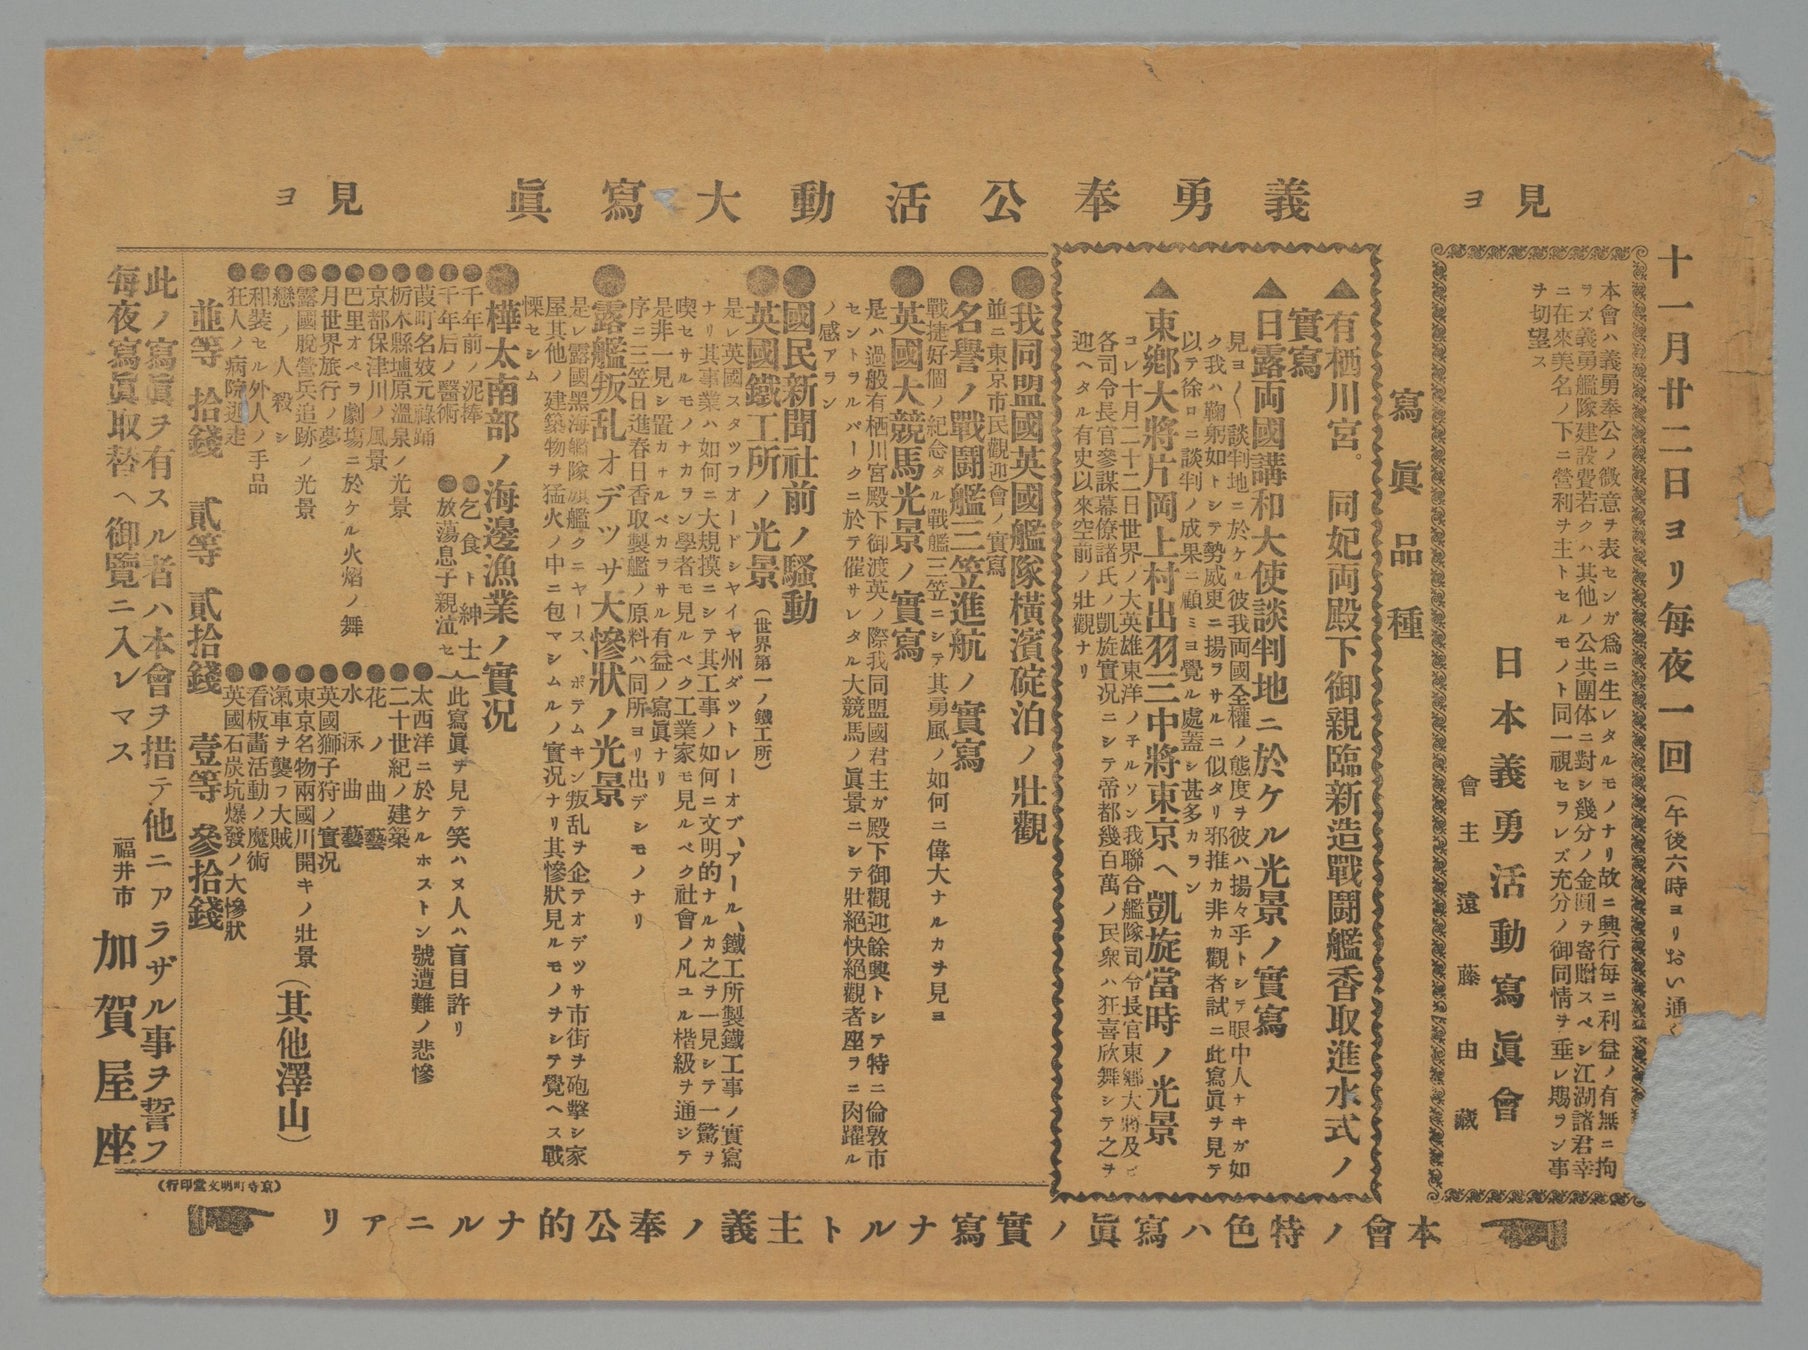 見ヨ
義勇奉公活動大寫眞
見ヨ
十一月廿二日ヨリ毎夜一回（午後六時ヨリおい通く
本會ハ義勇奉公ノ微意ヲ表センガ爲ニ生レタルモノナリ故ニ興行毎ニ利益ノ有無ニ拘
ラズ義勇艦隊建設費若クハ其他ノ公共團体ニ對シ幾分ノ金圓ヲ寄贈スベシ江湖諸君幸
ニ在來美名ノ下ニ營利ヲ主トセルモノト同一視セラレズ充分ノ御同情ヲ垂レ賜ラン事
ヲ切望ス
日本義勇活動寫眞會
會主　遠藤由藏
寫眞品種
▲有栖川宮。同妃両殿下御親臨新造戰鬪艦香取進水式ノ
實寫
▲日露両國講和大使談判地ニ於ケル光景ノ實寫
見ヨ〳〵談判地ニ於ケル彼我両國全權ノ態度ヲ彼ハ揚々乎トシテ眼中人ナキガ如
ク我ハ鞠躬如トシテ勢威更ニ揚ラサルニ似タリ邪推カ非カ觀者試ニ此寫眞ヲ見テ
以テ徐ロニ談判ノ成果ニ顧ミヨ覺ル處蓋シ甚多カラン
▲東郷大將片岡上村出羽三中將東京ヘ凱旋當時ノ光景
コレ十月二十二日世界ノ大英雄東洋ノネルソン我聯合艦隊司令長官東郷大將及ヒ
各司令長官參謀幕僚諸氏ノ凱旋實况ニシテ帝都幾百萬ノ民衆ハ狂喜欣舞シテ之ヲ
迎ヘタル有史以來空前ノ壯觀ナリ
●我同盟國英國艦隊横濱碇泊ノ壯觀
並ニ東京市民觀迎會ノ實寫
●名譽ノ戰鬪艦三笠進航ノ實寫
戰捷好個ノ紀念タル戰艦三笠ニシテ其勇風ノ如何ニ偉大ナルカヲ見ヨ
●英國大競馬光景ノ實寫
是ハ過般有栖川宮殿下御渡英ノ際我同盟國君主ガ殿下御觀迎餘興トシテ特ニ倫敦市
セントラルパークニ於テ催サレタル大競馬ノ眞景ニシテ壯絶快絶觀者座ラニ肉躍ル
ノ感アラン
●國民新聞社前ノ騷動
●英國鐵工所ノ光景（世界第一ノ鐵工所）
是レ英國スタツフオードシヤイヤ州ダツトレーオブ、アール、鐵工所製鐵工事ノ實寫
ナリ其事業ハ如何ニ大規摸ニシテ其工事ノ如何ニ文明的ナルカ之ヲ一見シテ一驚ヲ
喫セサルモノナカラン學者モ見ルベク工業家モ見ルベク社會ノ凡ユル楷級ヲ通シテ
是非一見シ置カルベカラサル有益ノ寫眞ナリ
序ニ三笠日進春日香取製艦ノ原料ハ同所ヨリ出デシモノナリ
●露艦叛乱オデツサ大慘狀ノ光景
是レ露國黑海艦隊旗艦クニヤース、ポテムキン叛乱ヲ企テオデツサ市街ヲ砲擊シ家
屋其他ノ建築物ヲ猛火ノ中ニ包マシムルノ實況ナリ其慘狀見ルモノヲシテ覺ヘス戰
慄セシム
●樺太南部ノ海邊漁業ノ實况
●千年前ノ泥棒
●千年后ノ醫術
●葭町名妓元祿踊
●栃木縣塩原溫泉ノ光景
●京都保津川ノ風景
●巴里オペラ劇塲ニ於ケル火焔ノ舞
●月世界旅行ノ夢
●露國脫營兵追跡ノ光景
●戀ノ人殺シ
●和装セル外人ノ手品
●狂人ノ病院迯走
●乞食ト紳士
●放蕩息子親泣セ
（此寫眞ヲ見テ笑ハヌ人ハ盲目許リ
●太西洋ニ於ケルホストン號遭難ノ悲慘
●二十世紀ノ建築
●花ノ曲藝
●水泳曲藝
●英國獅子狩ノ實况
●東京名物兩國川開キノ壯景
●滊車ヲ襲フ大賊
●看板畵活動ノ魔術
●英國石炭坑爆發ノ大慘狀
（其他澤山）
並等　拾錢　貳等　貳拾錢　壹等　參拾錢
此ノ寫眞ヲ有スル者ハ本會ヲ措テ他ニアラザル事ヲ誓フ
毎夜寫眞取替ヘ御覽ニ入レマス
福井市　加賀屋座
（京寺町明文堂印行）
本會ノ特色ハ寫眞ノ實寫ナルト主義ノ奉公的ナルニアリ